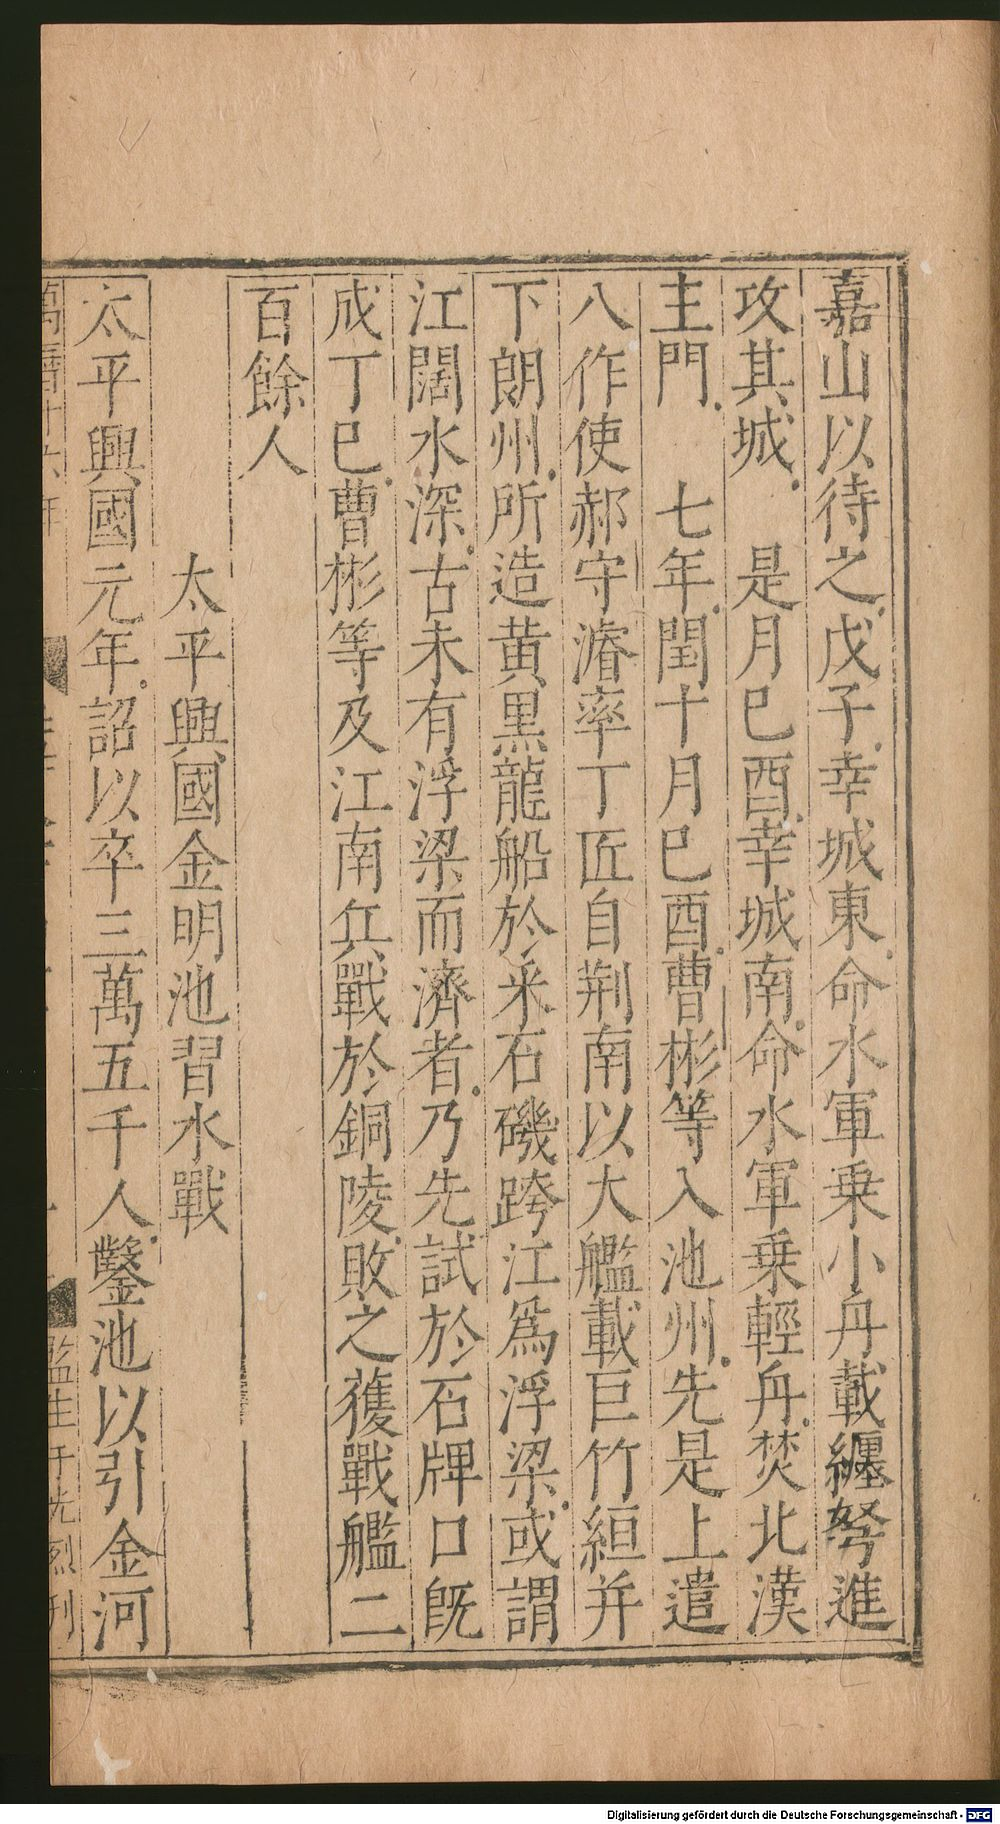 嘉山以待之戊子幸城東命水軍乗小舟載纏弩進
攻其城　是月巳酉幸城南命水軍乗輕舟焚北漢
主門　七年閏十月巳酉曹彬等入池州先是上遣
八作使郝守濬率丁匠自荆南以大艦載巨竹絙并
下朗州所造黄黒龍船於釆石磯跨江爲浮梁或謂
江闊水深古未有浮梁而濟者乃先試於石牌口旣
成丁巳曹彬等及江南兵戰於銅陵敗之獲戰艦二
百餘人
太平興國金明池習水戰
太平興國元年詔以卒三萬五千人鑿池以引金河
萬曆十六年
監生于光烈刊
Digitalisierung gefördert durch die Deutsche Forschungsgemeinschaft - DFG